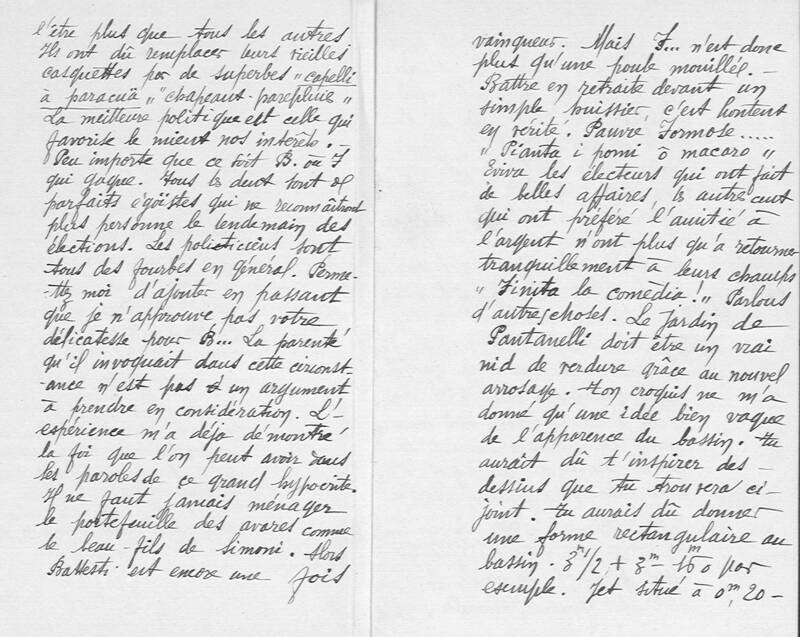 l'être plus que tous les autres
Ils ont dû remplacer leurs vieilles
casquettes par de superbes "capelli
à paracùa" "chapeaut-parepluie"
La meilleure politique est celle qui
favorise le mieut nos intérêts. -
Peu importe que ce soit B. ou F
qui gagne. Tous les deut sont de
parfaits égoïstes qui ne reconnaîtront
plus personne le lendemain des
élections. Les politiciens sont
tous des fourbes en général. Perme-
-ttez moi d'ajouter en passant
que je n'approuve pas votre
délicatesse pour B... La parenté
qu'il invoquait dans cette circonst-
-ance n'est pas un argument
à prendre en considération. L'-
espérience m'a déja démontré
la foi que l'on peut avoir dans
les paroles de ce grand hypocrite.
Il ne faut jamais ménager
le portefeuille des avares comme
le beau-fils de Simoni. Alors
Battesti est encore une fois
vainqueur. Mais F... n'est donc
plus qu'une poule mouillée. -
Battre en retraite devant un
simple huissier, c'est honteut
en vérité. Pauvre Formose.....
"Pianta i pomi ô macaro"
Eviva les électeurs qui ont fait
de belles affaires, les autres cut
qui ont préféré l'amitié à
l'argent n'ont plus qu'à retourner
tranquillement à leurs champs
"Finita la comèdia!" Parlons
d'autres choses. Le Jardin de
Pantanelli doit être un vrai
nid de verdure grâce au nouvel
arrosage. Ton croquis ne m'a
donné qu'une idée bien vague
de l'apparence du bassin. Tu
aurait dû t'inspirer des -
dessins que tu trouvera ci-
joint. Tu aurais dû donner
une forme rectangulaire au
bassin. 3m 1/2 + 3m - 1m50 par
esemple. Jet situé à 0m,20 -